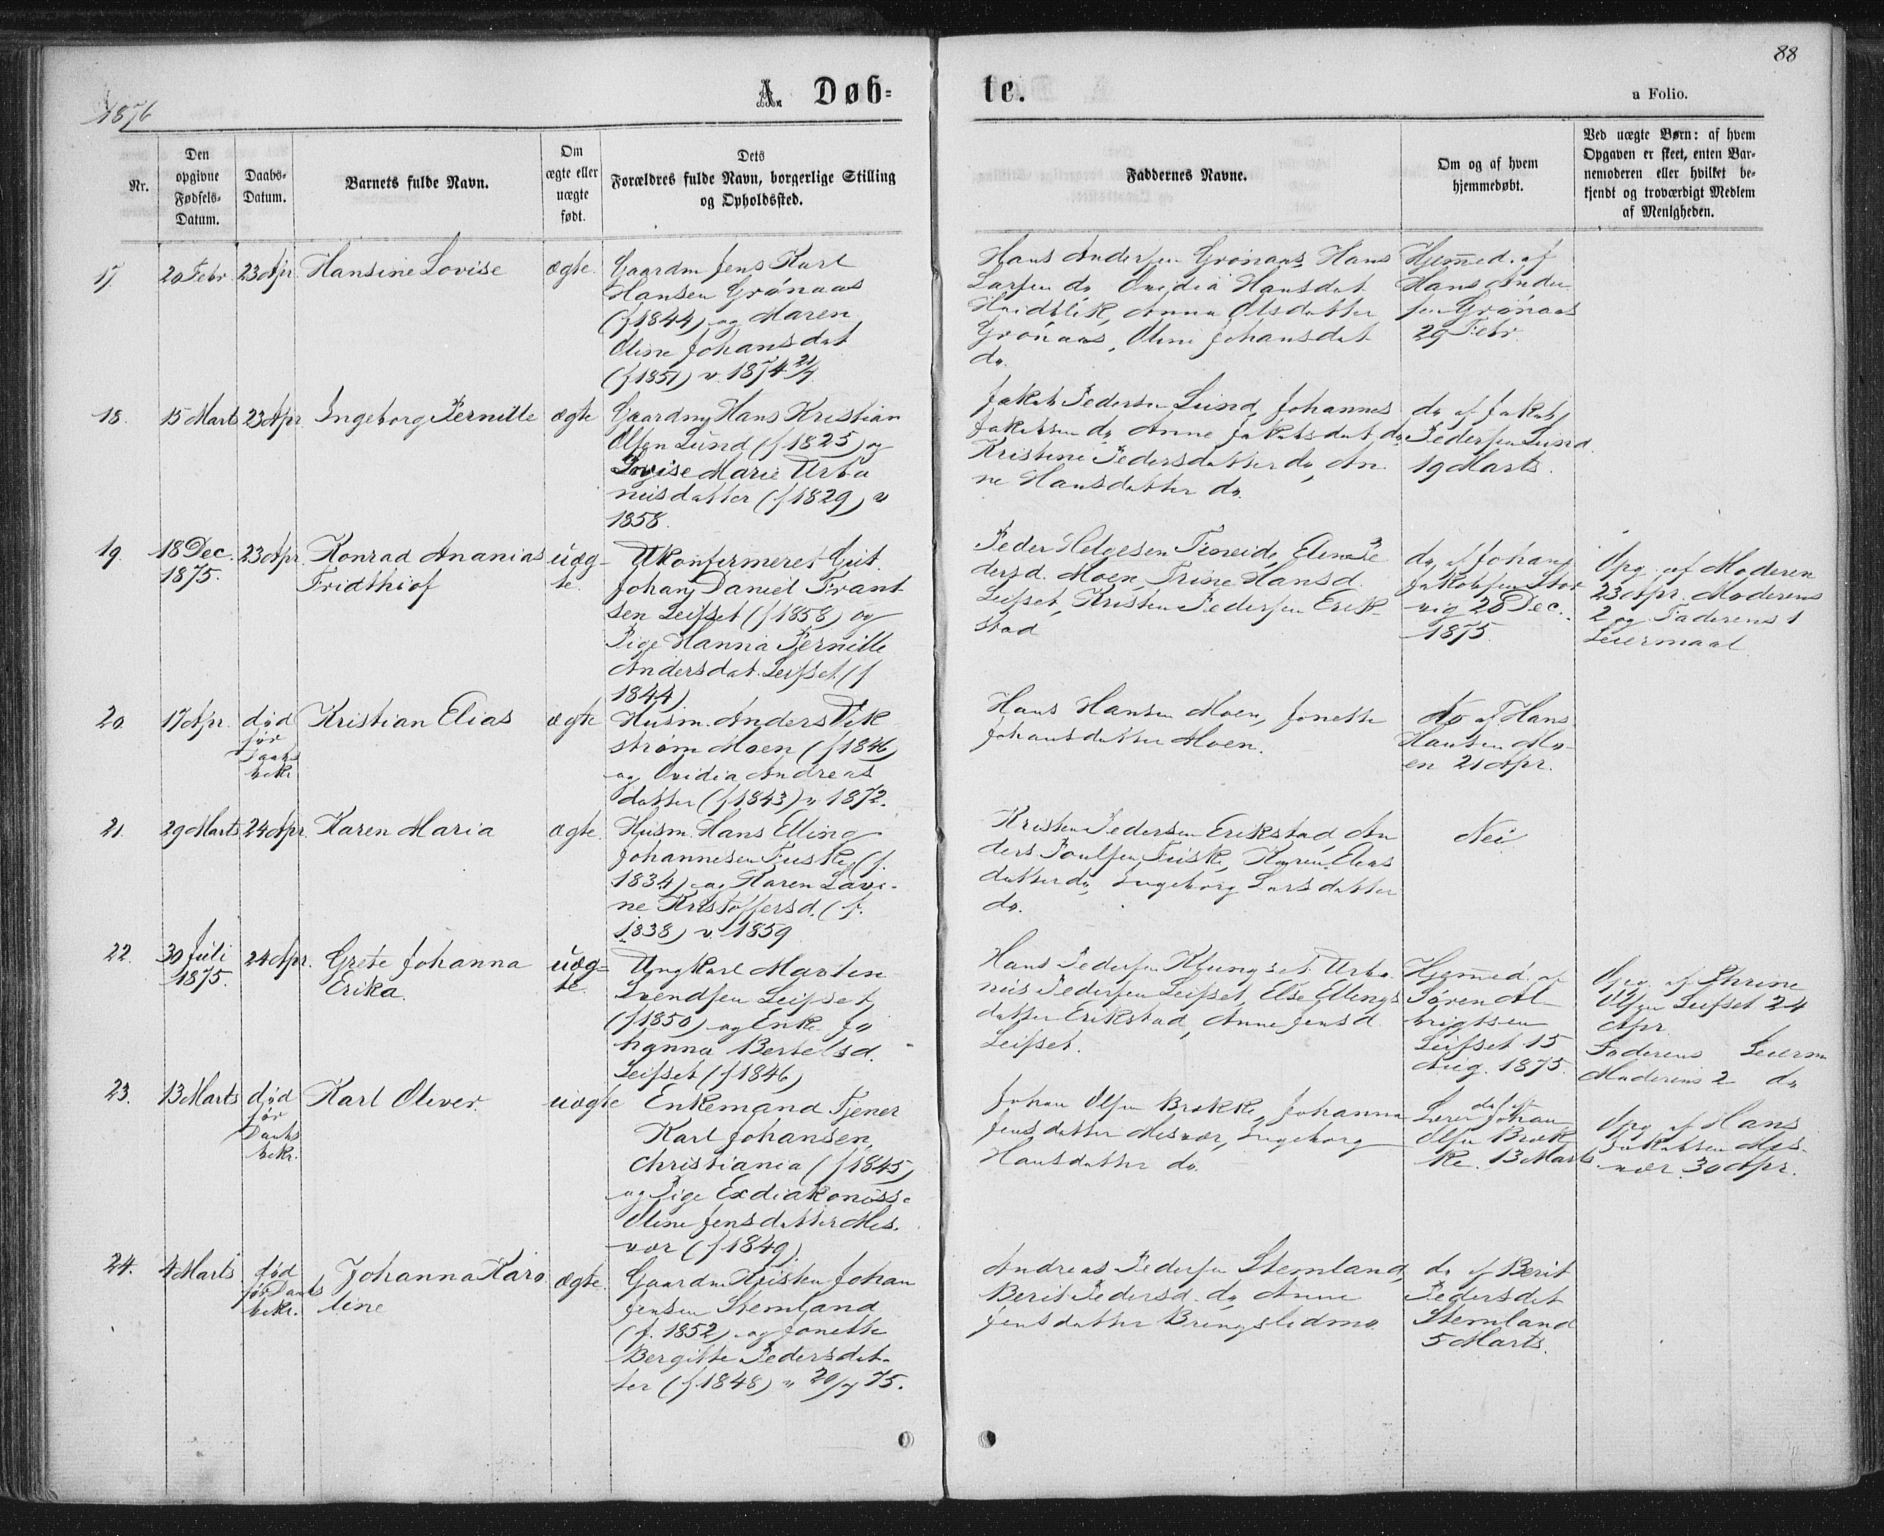 88
1876
A. Døb-
te.
a Folio.
Nr.
Den opgivne Fødsels-Datum.
Daabs-Datum.
Barnets fulde Navn.
Om ægte eller uægte født.
Dets Forældres fulde Navn, borgerlige Stilling og Opholdssted.
Faddernes Navne.
Om og af hvem hjemmedøbt.
Ved uægte Børn: af hvem Opgaven er skeet, enten Barnemoderen eller hvilket bekjendt og troværdigt Medlem af Menigheden.
17.
20 Febr
23 Apr
Hansine Lovise
ægte.
Gaardm Jens Karl
Hansen Grønaas
(f 1844) og Maren
Oline Johansdat
(f 1851) v. 1874 21/7
Hans Andersen Grønaas, Hans
Larsen do, Ovidia Hansdat
Haidblik, Anna Olsdatter
Grønaas, Oline Johansdat
do.
Hjemmed. af
Hans Ander
sen Grønaas
29 Febr.
18.
15 Marts
23 Apr
Ingeborg Pernille
ægte
Gaardm Hans Kristian
Olsen Lund (f 1825) og
Lovise Marie Urba
nusdatter (f 1829) v
1858.
Jakob Pedersen Lund, Johannes
Jakobsen do, Anne Jakobsdat do,
Kristine Pedersdatter do, An
ne Hansdatter do.
do af Jakob
Pedersen Lund
19 Marts.
19.
18 Dec.
1875.
23 Apr
Konrad Ananias
Fridthiof
uæg-
te.
Ukonfermeret Gut
Johan Daniel Frant
sen Leifset (f 1858) og
Pige Hanna Pernille
Andersdat. Leifset (f
1844)
Peder Helgesen Fineide, Elen Pe
dersd. Moen, Trine Hansd.
Leifset, Kristen Pedersen Erik-
stad
do af Johan
Jakobsen Stor
vig 28 Dec.
1875.
Opg. af Moderen
23 Apr. Moderens
2 og Faderens 1
Leiermaal
20
17 Apr.
død
før
Daabs
bekr
Kristian Elias
ægte
Husm. Anders Vik
strøm Moen (f 1846)
og Ovidia Andreas
datter (f 1843) v 1872.
Hans Hansen Moen, Jonette
Johansdatter Moen.
do af Hans
Hansen Mo-
en 21 Apr.
21.
29 Marts
24 Apr.
Karen Maria
ægte.
Husm. Hans Elling
Johannesen Fuske (f.
1834) og Karen Lavi-
ne Kristoffersd. (f.
1838) v. 1859
Kristen Pedersen Erikstad, An
ders Poulsen Fuske, Karen Elias
datter do, Ingeborg Larsdatter
do.
Nei
22.
30 Juli
1875.
24 Apr.
Grete Johanna
Erika.
uæg-
te.
Ungkarl Marten
Svendsen Leifset
(f 1850) og Enke Jo
hanna Bertelsd.
Leifset (f 1846)
Hans Pedersen Klungset, Urba
nus Pedersen Leifset, Else Ellings
datter Erikstad, Anne Jensd
Leifset.
Hjemmed. af
Søren Al
brigtsen
Leifset 15
Aug. 1875.
Opg. af Thrine
Olsen Leifset 24
Apr
Faderens Leierm
Moderens 2 do
23.
13 Marts
død
før
Daabs
bekr.
Karl Oliver
uægte
Enkemand Tjener
Karl Johansen,
Christiania (f 1845)
og Pige Exdiakonisse
Oline Jensdatter Mis-
vær (f 1849).
Johan Olsen Brække, Johanna
Jensdatter Misvær, Ingeborg
Hansdatter do.
do af
Lærer Johan
Olsen Bræk
ke. 13 Marts
Opg af Hans
Jakobsen Mis-
vær 30 Apr.
24.
4 Marts
død
før Daabs
bekr.
Johanna Karo
line
ægte.
Gaardm Kristen Johan
Jensen Stemland
(f. 1852) og Jonette
Bergitte Pedersdat-
ter (f 1848) v 20/7 75.
Andreas Pedersen Stemland,
Berit Pedersd. do, Anne
Jensdatter Bringslidmo
do af Berit
Pedersdat
Stemland
5 Marts.